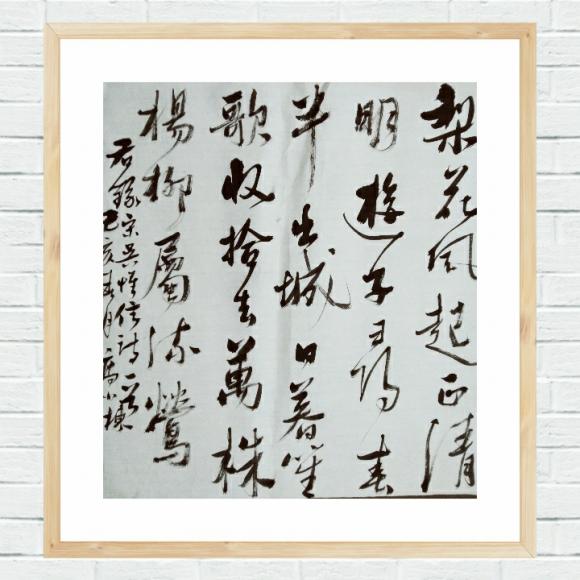 梨花风起正清
明遊子尋春
半出城日暮笙
歌收拾去萬株
楊柳屬流鶯
右錄宋吳惟信诗一首
己亥春月